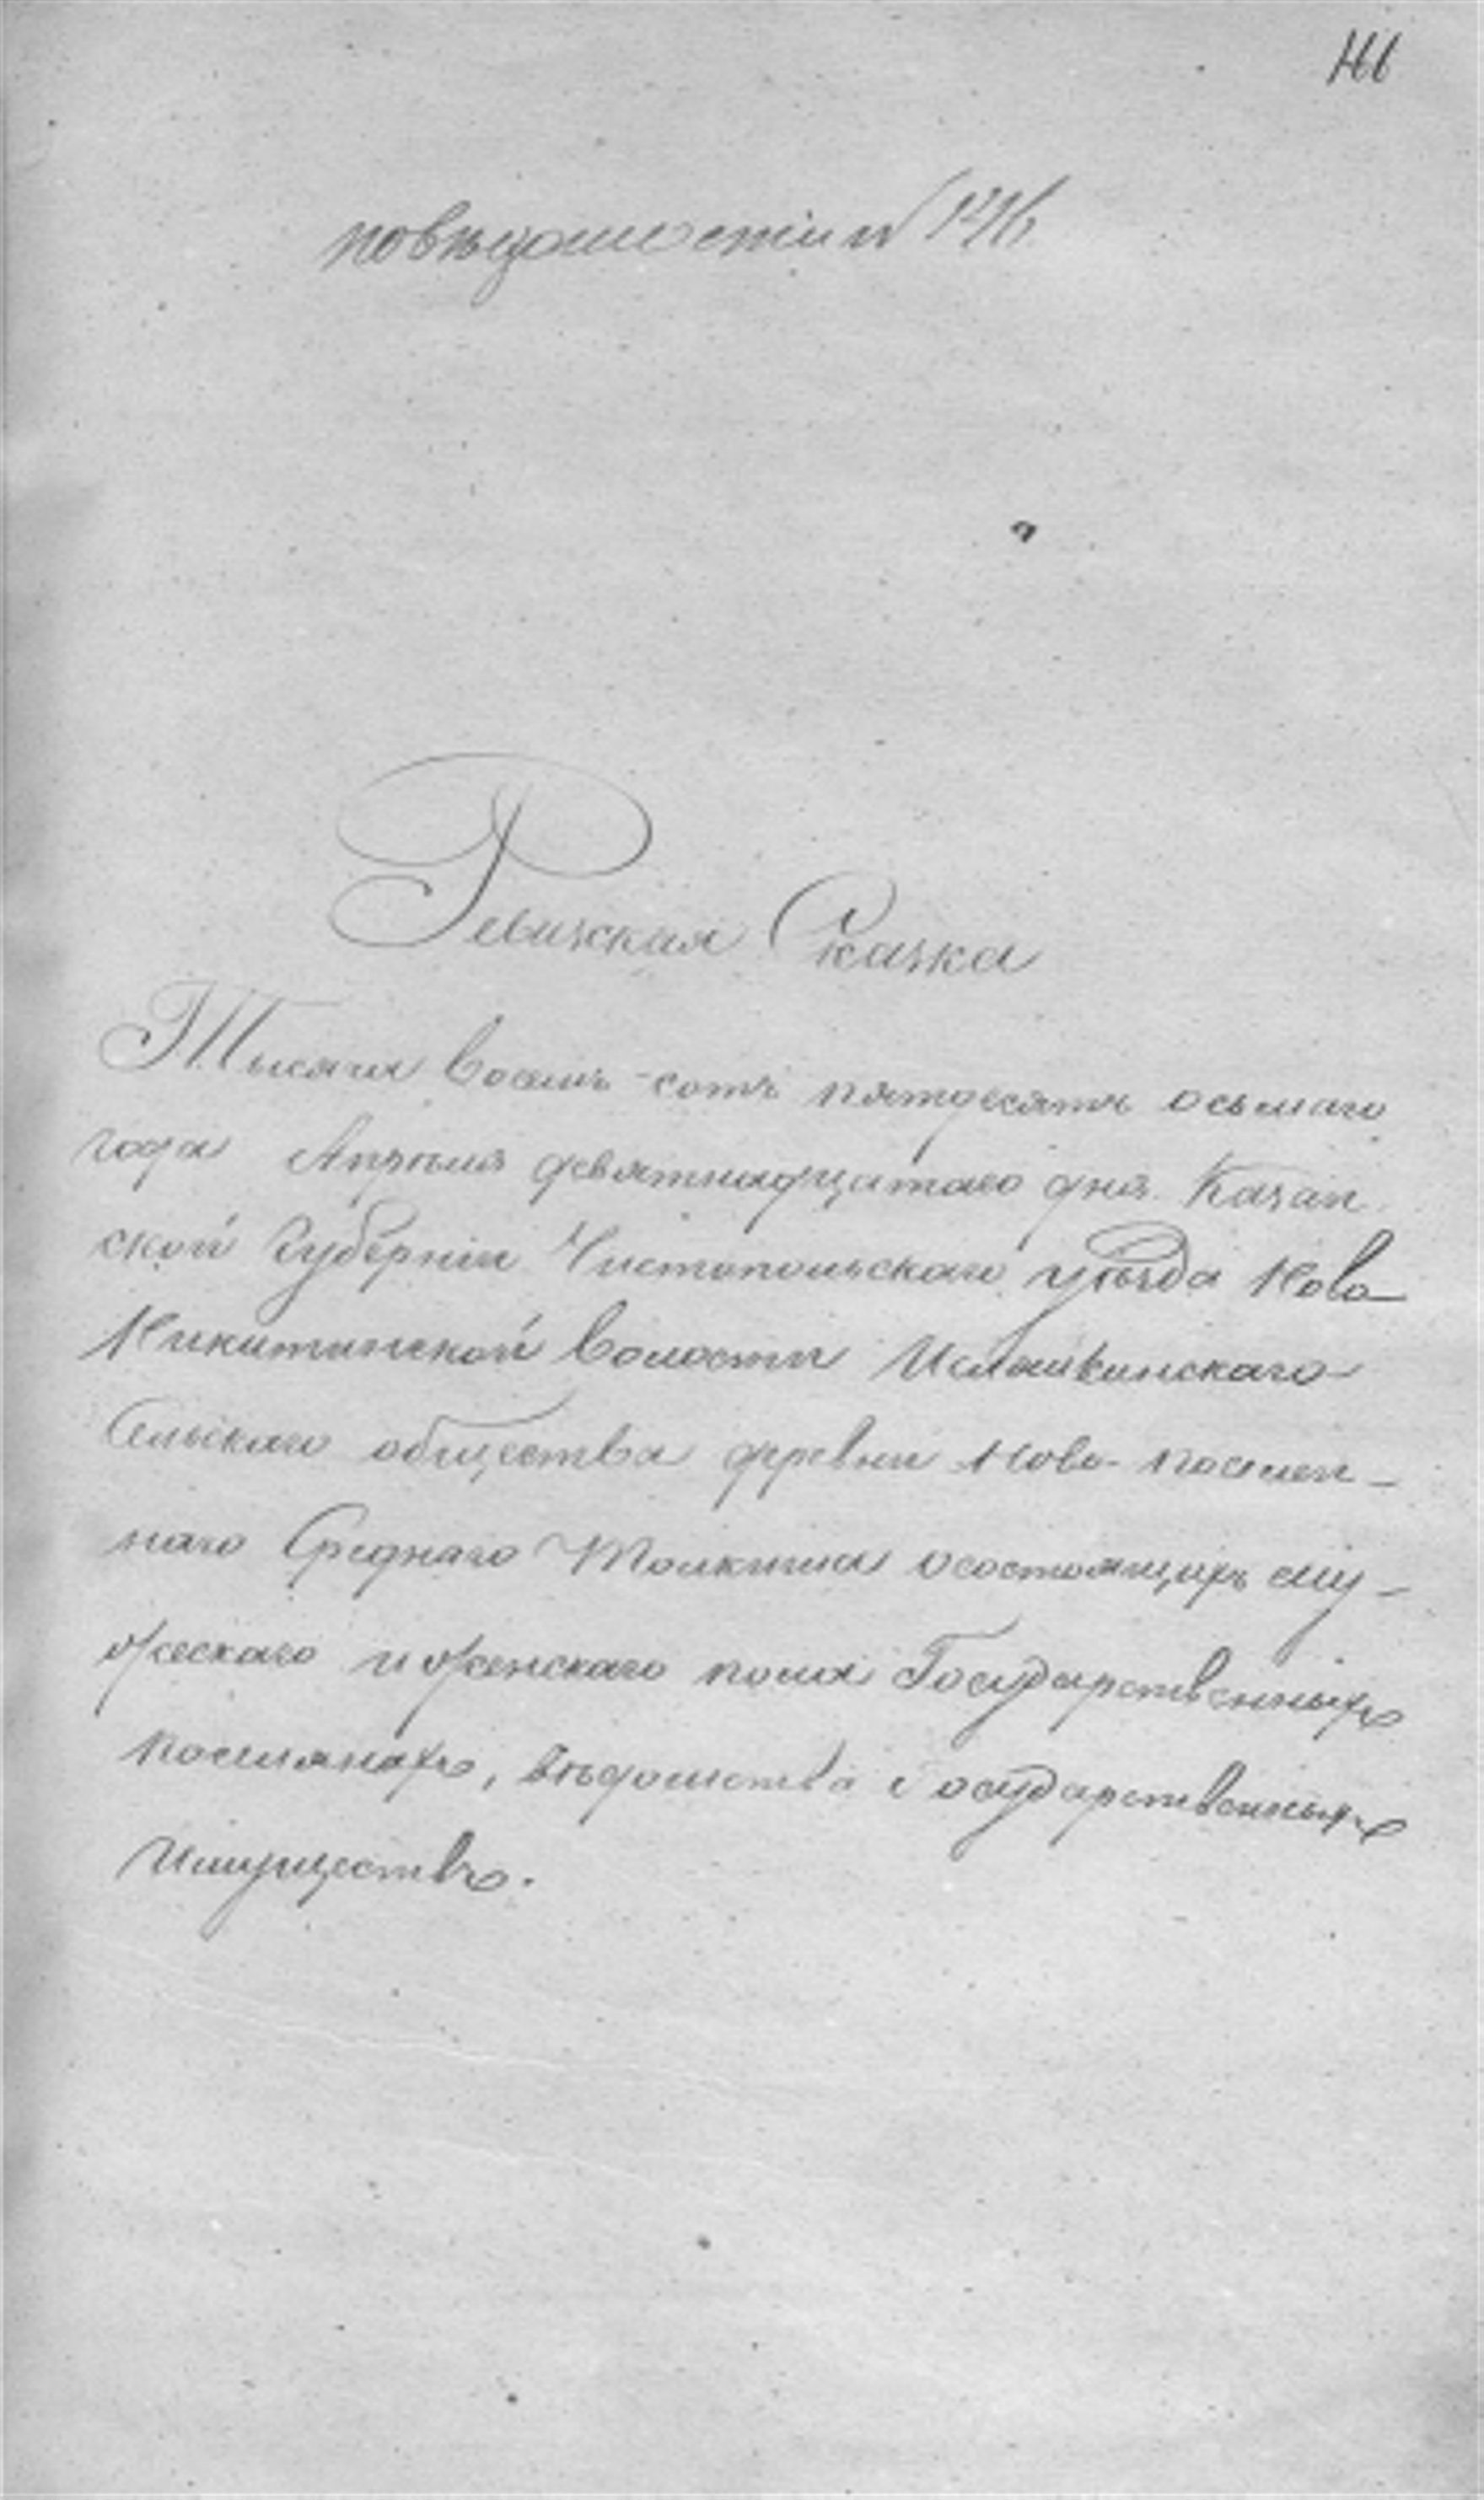 по вѣдомости N 1216
Ревизская Сказка
Тысяча восемь-сотъ пятдесятъ осьмаго
года Апрѣля девятнадцатаго дня Казан
ской Губерніи Чистопольскаго уѣзда Ново
Никитинской волости Ислайкинскаго
Сельскаго общества деревни Ново-поселен-
наго Средняго Толкиша о состоящихъ му-
жескаго и женскаго пола Государственныхъ
поселянахъ, вѣдомства Государственныхъ
Имуществъ.